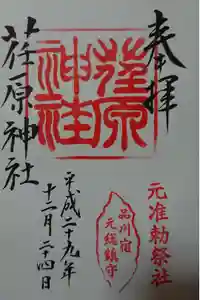 奉拝
元准勅祭社
荏原
神社
品川宿
元総鎮守
平成二十九年
十二月二十四日
荏原神社